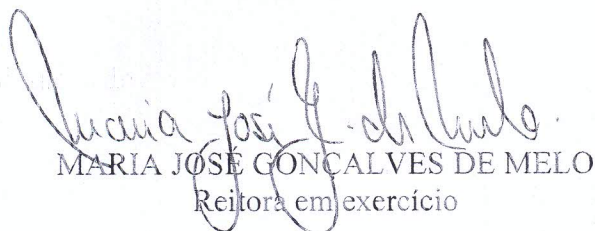 Maria José G. de Melo.
MARIA JOSÉ GONÇALVES DE MELO
Reitora em exercício